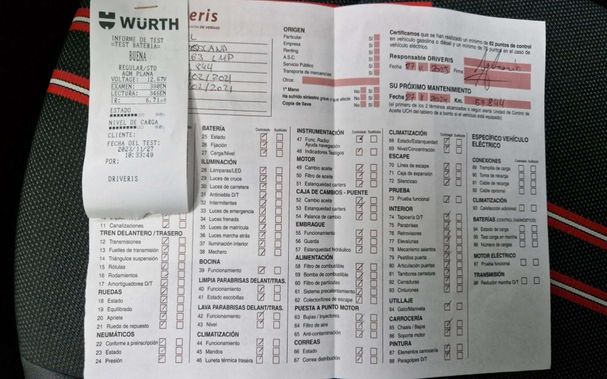 WÜRTH
INFORME DE TEST
=TEST BATERIA=
BUENA
REGULAR/STD
AGM PLANA
VOLTAGE: 12.67V
EXAMEN: 390EN
LECTURA: 346EN
IR: 6.71
ESTADO
NIVEL DE CARGA
CLIENTE:
FECHA DEL TEST:
2023/11/27
10:33:49
POR:
DRIVERIS
eris
ORIGEN
Particular
Empresa
Renting
A.S.C.
Servicio Público
Transporte de mercancías
Otros
1ª Mano
Ha sufrido siniestro
Copia de llave
Certificamos que se han realizado un mínimo de 82 puntos de control
en vehículo gasolina o diésel y un mínimo de 71 puntos en el caso de
vehículo eléctrico.
Responsable DRIVERIS
Fecha
SU PRÓXIMO MANTENIMIENTO
Fecha
Km.
11 Canalizaciones
TREN DELANTERO / TRASERO
12 Transmisiones
13 Fuelles de transmisión
14 Triángulos suspensión
15 Rótulas
16 Rodamientos
17 Amortiguadores D/T
RUEDAS
18 Estado
19 Equilibrado
20 Apriete
21 Rueda de repuesto
NEUMÁTICOS
22 Conforme a preinscripción
23 Estado
24 Presión
BATERÍA
25 Estado
26 Fijación
27 Carga/Nivel
ILUMINACIÓN
28 Lámparas/LED
29 Luces de cruce
30 Luces de carretera
31 Antiniebla D/T
32 Intermitentes
33 Luces de emergencia
34 Luces frenada
35 Luces de matrícula
36 Luces marcha atrás
37 Iluminación interior
38 Mechero
BOCINA
39 Funcionamiento
LIMPIA PARABRISAS DELANT/TRAS.
40 Funcionamiento
41 Estado escobillas
LAVA PARABRISAS DELANT/TRAS.
42 Funcionamiento
43 Nivel
CLIMATIZACIÓN
44 Antivaho
45 Mandos
46 Luneta térmica trasera
INSTRUMENTACIÓN
47 Func. Radio/
Ayuda navegación
48 Indicadores Testigos
MOTOR
49 Cambio aceite
50 Filtro aceite
51 Estanqueidad carters
CAJA DE CAMBIOS - PUENTE
52 Cambio aceite
53 Estanqueidad carter
54 Palanca de cambio
EMBRAGUE
55 Funcionamiento
56 Guarda
57 Estanqueidad hidráulico
ALIMENTACIÓN
58 Filtro de combustible
59 Bomba de combustible
60 Filtro de partículas
61 Sistema precalentamiento
62 Colectores/fijaciones de escape
PUESTA A PUNTO MOTOR
63 Bujías / Inyectores
64 Filtro de aire
65 Anti-contaminación
CORREAS
66 Estado
67 Correa distribución
CLIMATIZACIÓN
68 Estado/Estanqueidad
69 Nivel/Concentración
ESCAPE
70 Línea de escape
71 Caja de expansión
72 Silencioso
PRUEBA
73 Prueba funcional
INTERIOR
74 Tapicería D/T
75 Parasoles
76 Retrovisores
77 Elevalunas
78 Mecanismo asientos
79 Position puerta
80 Articulación puertas
81 Tambores cerradura
82 Cerraduras
83 Cinturones
UTILLAJE
84 Gato/Manivela
CARROCERÍA
85 Chasis / Bajos
86 Soporte motor
PINTURA
87 Elementos carrocería
88 Paragolpes D/T
ESPECÍFICO VEHÍCULO
ELÉCTRICO
CONEXIONES
CLIMATIZACIÓN
BATERÍAS
94 Estado de carga
95 Test carga en marcha
96 Número de cargas
MOTOR ELÉCTRICO
97 Prueba funcional
TRANSMISIÓN
98 Reductor marcha D/T